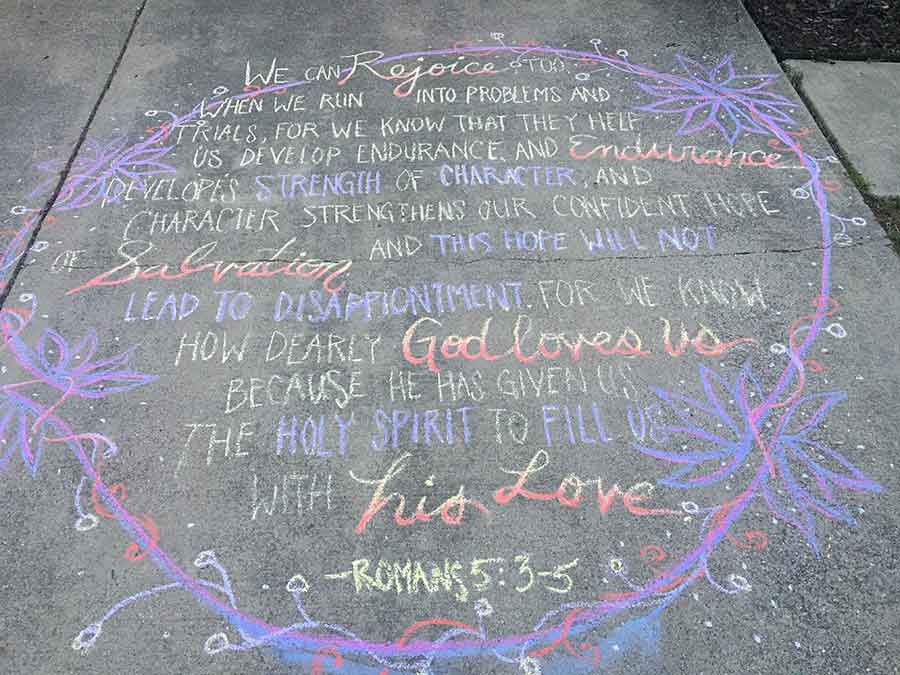 WE CAN Rejoice, TOO,
WHEN WE RUN INTO PROBLEMS AND
TRIALS, FOR WE KNOW THAT THEY HELP
US DEVELOP ENDURANCE. AND Endurance
DEVELOPES STRENGTH OF CHARACTER, AND
CHARACTER STRENGTHENS OUR CONFIDENT HOPE
OF Salvation. AND THIS HOPE WILL NOT
LEAD TO DISAPPIONTMENT. FOR WE KNOW
HOW DEARLY God loves Us
BECAUSE HE HAS GIVEN US
THE HOLY SPIRIT TO FILL US
WITH his Love
-ROMANS 5:3-5